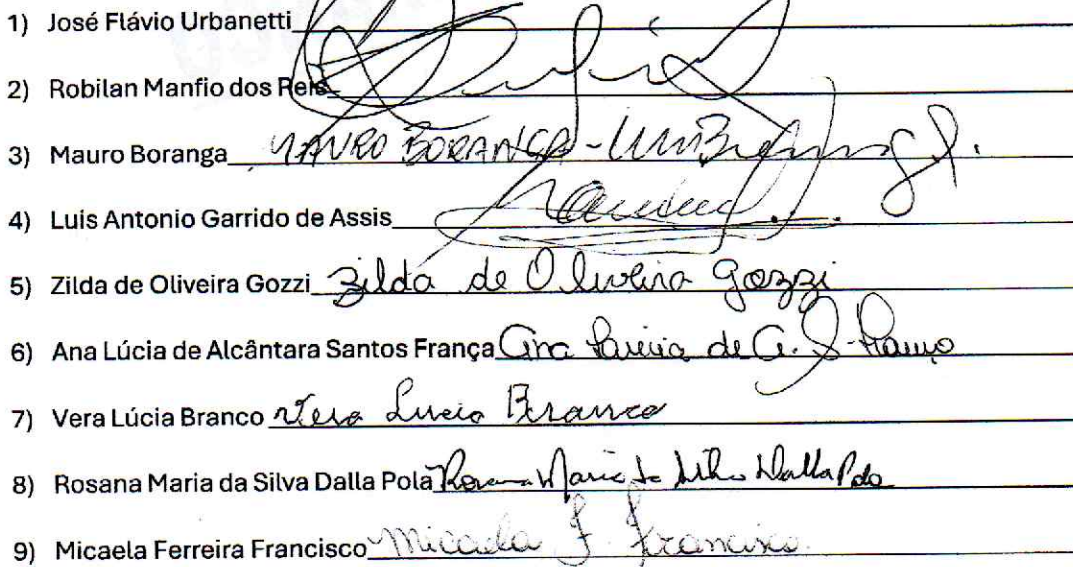 1) José Flávio Urbanetti
2) Robilan Manfio dos Reis
3) Mauro Boranga MAURO BORANGA -
4) Luis Antonio Garrido de Assis
5) Zilda de Oliveira Gozzi Zilda de Oliveira Gozzi
6) Ana Lúcia de Alcântara Santos França Ana Lúcia de A. S. França
7) Vera Lúcia Branco Vera Lucia Branco
8) Rosana Maria da Silva Dalla Pola Rosana Maria da Silva Dalla Pola
9) Micaela Ferreira Francisco Micaela F. Francisco.